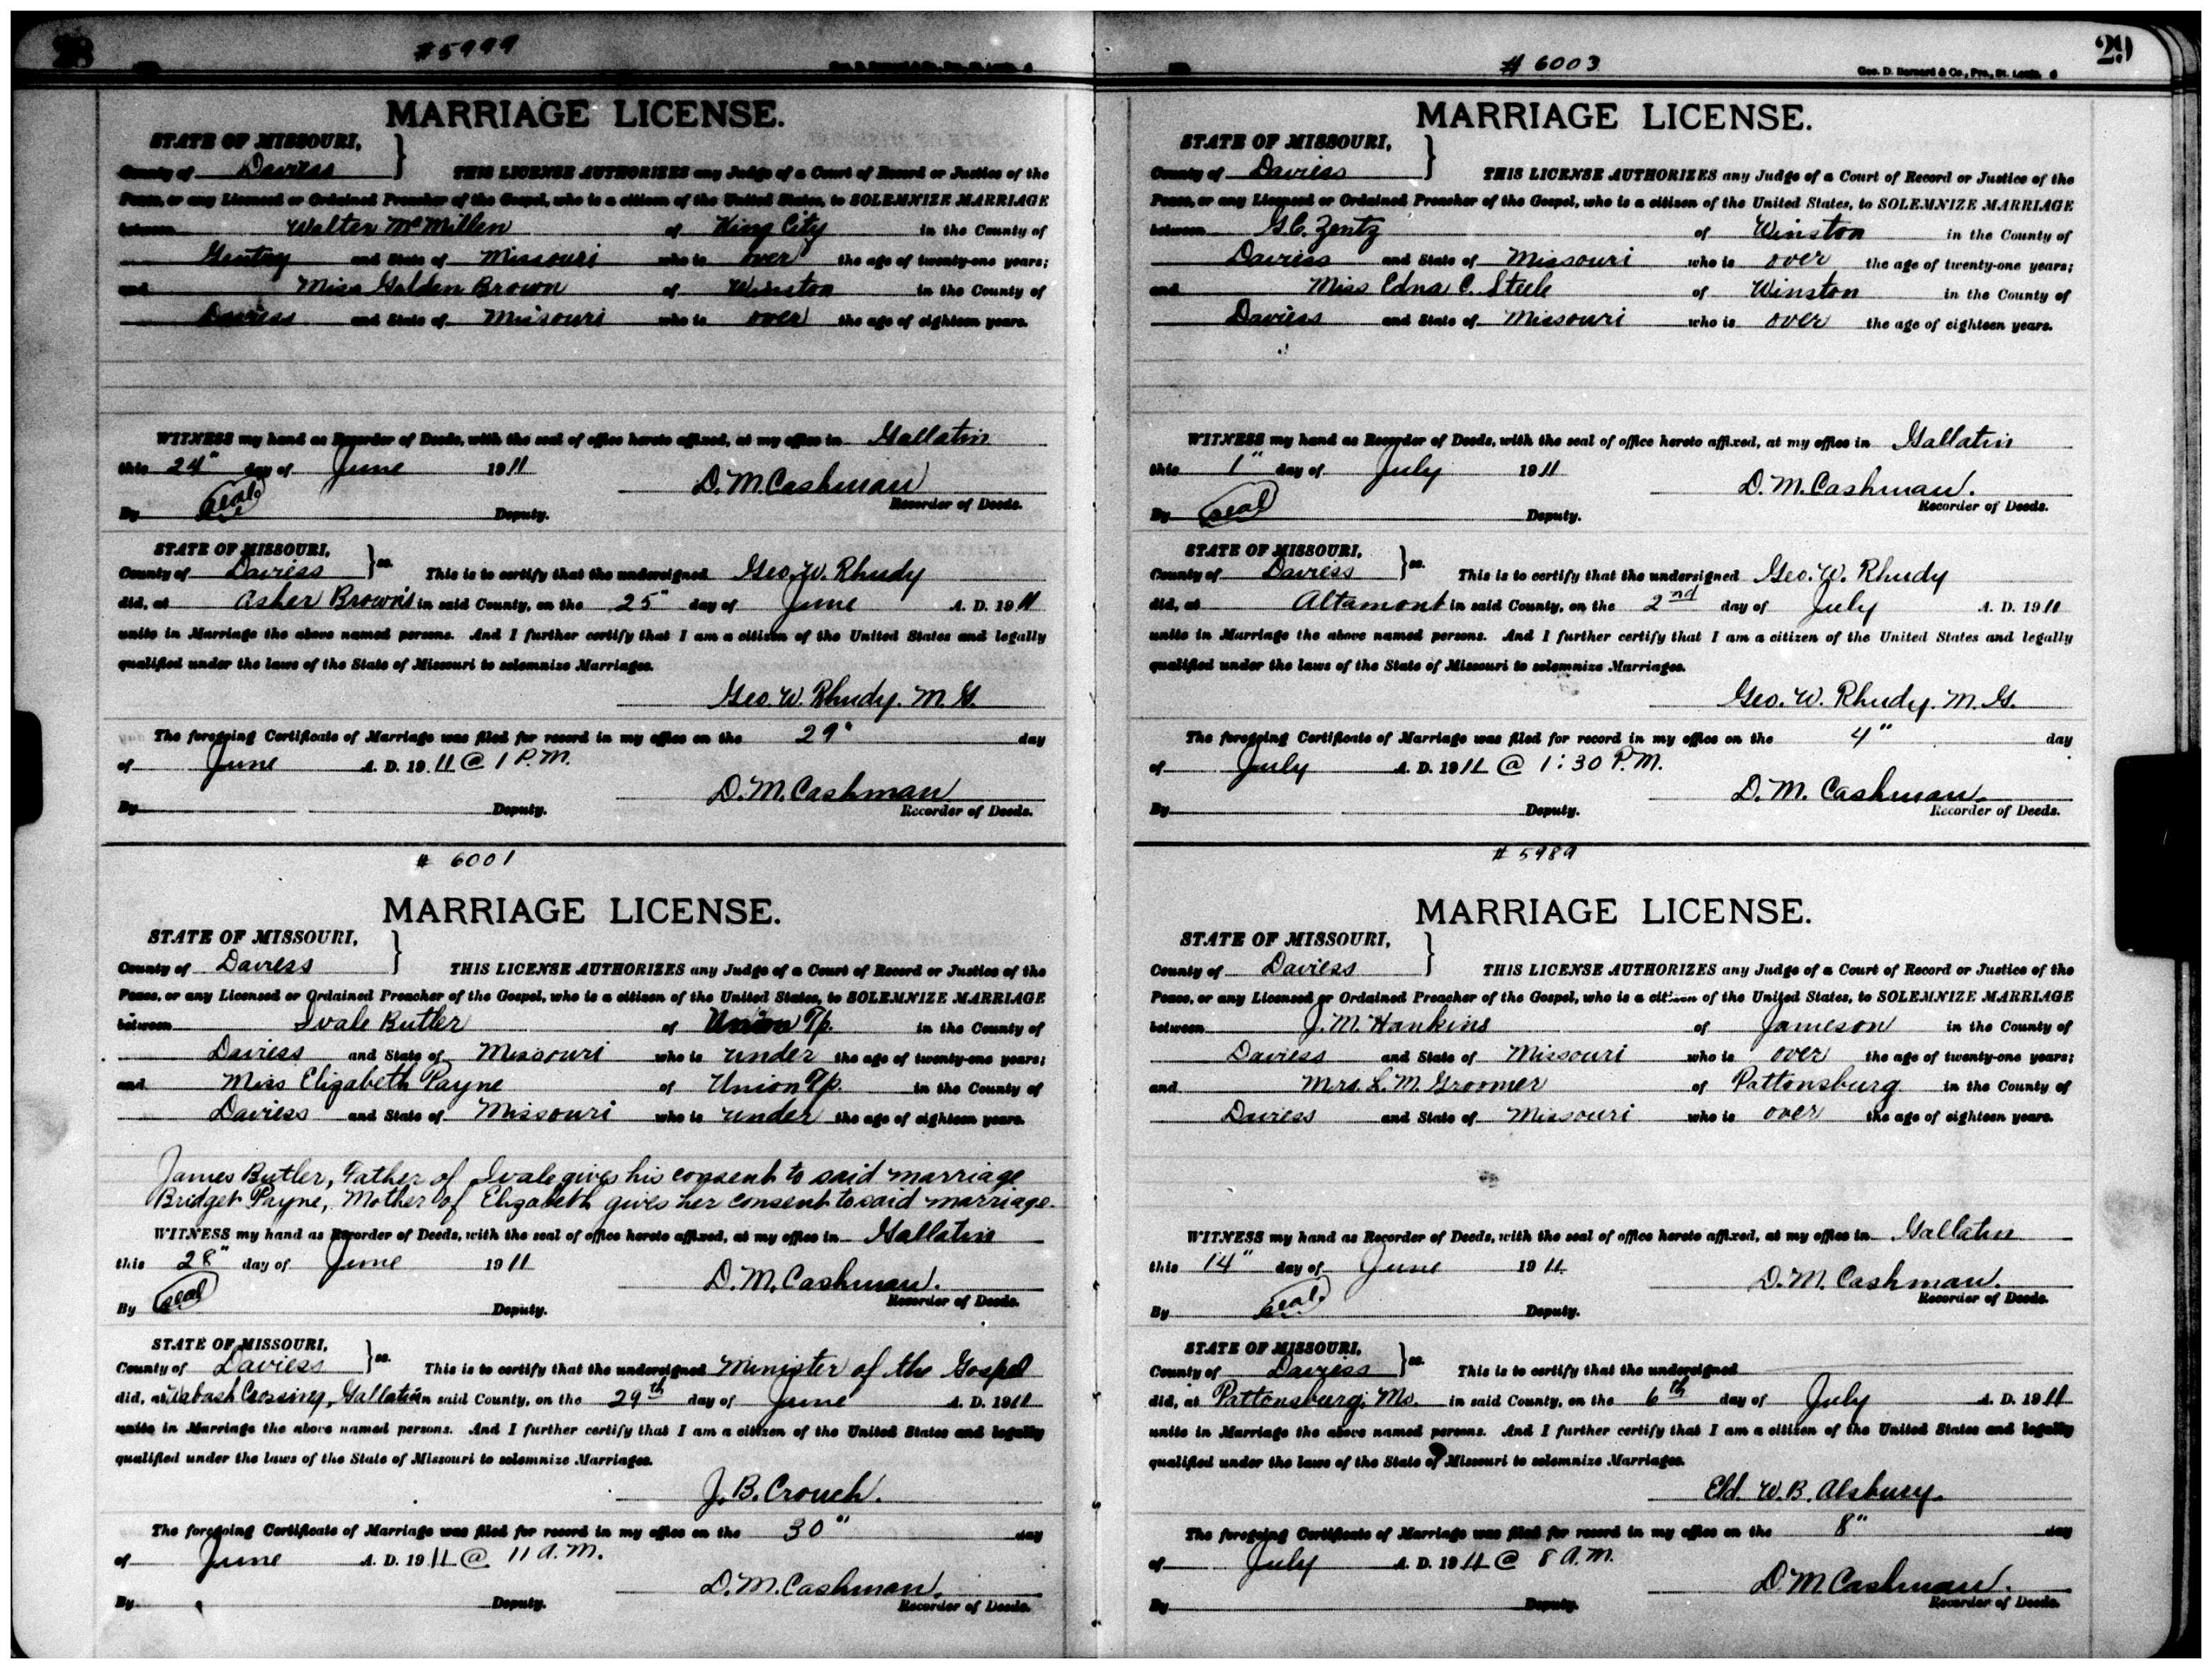 28
#5999
MARRIAGE LICENSE.
STATE OF MISSOURI,
County of Daviess } THIS LICENSE AUTHORIZES any Judge of a Court of Record or Justice of the
Peace, or any Licensed or Ordained Preacher of the Gospel, who is a citizen of the United States, to SOLEMNIZE MARRIAGE
between Walter McMillen of King City in the County of
Gentry and State of Missouri who is over the age of twenty-one years;
and Miss Golden Brown of Winston in the County of
Daviess and State of Missouri who is over the age of eighteen years.
WITNESS my hand as Recorder of Deeds, with the seal of office hereto affixed, at my office in Gallatin
this 24" day of June 1911
D. M. Cashman
Recorder of Deeds.
By Seal Deputy.
STATE OF MISSOURI,
County of Daviess } ss. This is to certify that the undersigned Geo. W. Rhudy
did, at Asher Brown's in said County, on the 25" day of June A. D. 1911
unite in Marriage the above named persons. And I further certify that I am a citizen of the United States and legally
qualified under the laws of the State of Missouri to solemnize Marriages.
Geo. W. Rhudy. M. G.
The foregoing Certificate of Marriage was filed for record in my office on the 29" day
of June A. D. 1911 @ 1 P. M.
D. M. Cashman
By Deputy. Recorder of Deeds.
# 6001
MARRIAGE LICENSE.
STATE OF MISSOURI,
County of Daviess } THIS LICENSE AUTHORIZES any Judge of a Court of Record or Justice of the
Peace, or any Licensed or Ordained Preacher of the Gospel, who is a citizen of the United States, to SOLEMNIZE MARRIAGE
between Ivale Butler of Union Tp. in the County of
Daviess and State of Missouri who is under the age of twenty-one years;
and Miss Elizabeth Payne of Union Tp. in the County of
Daviess and State of Missouri who is under the age of eighteen years.
James Butler, Father of Ivale gives his consent to said marriage
Bridget Payne, Mother of Elizabeth gives her consent to said marriage.
WITNESS my hand as Recorder of Deeds, with the seal of office hereto affixed, at my office in Gallatin
this 28" day of June 1911
D. M. Cashman.
Recorder of Deeds.
By Seal Deputy.
STATE OF MISSOURI,
County of Daviess } ss. This is to certify that the undersigned Minister of the Gospel
did, at Wabash Crossing, Gallatin in said County, on the 29th day of June A. D. 1911
unite in Marriage the above named persons. And I further certify that I am a citizen of the United States and legally
qualified under the laws of the State of Missouri to solemnize Marriages.
J. B. Crouch.
The foregoing Certificate of Marriage was filed for record in my office on the 30" day
of June A. D. 1911 @ 11 A. M.
D. M. Cashman.
By Deputy. Recorder of Deeds.
29
# 6003
Geo. D. Barnard & Co., Pro., St. Louis.
MARRIAGE LICENSE.
STATE OF MISSOURI,
County of Daviess } THIS LICENSE AUTHORIZES any Judge of a Court of Record or Justice of the
Peace, or any Licensed or Ordained Preacher of the Gospel, who is a citizen of the United States, to SOLEMNIZE MARRIAGE
between G. C. Zentz of Winston in the County of
Daviess and State of Missouri who is over the age of twenty-one years;
and Miss Edna C. Steele of Winston in the County of
Daviess and State of Missouri who is over the age of eighteen years.
WITNESS my hand as Recorder of Deeds, with the seal of office hereto affixed, at my office in Gallatin
this 1" day of July 1911
D. M. Cashman.
Recorder of Deeds.
By Seal Deputy.
STATE OF MISSOURI,
County of Daviess } ss. This is to certify that the undersigned Geo. W. Rhudy
did, at Altamont in said County, on the 2nd day of July A. D. 1911
unite in Marriage the above named persons. And I further certify that I am a citizen of the United States and legally
qualified under the laws of the State of Missouri to solemnize Marriages.
Geo. W. Rhudy. M. G.
The foregoing Certificate of Marriage was filed for record in my office on the 4" day
of July A. D. 1911 @ 1:30 P. M.
D. M. Cashman.
By Deputy. Recorder of Deeds.
# 5989
MARRIAGE LICENSE.
STATE OF MISSOURI,
County of Daviess } THIS LICENSE AUTHORIZES any Judge of a Court of Record or Justice of the
Peace, or any Licensed or Ordained Preacher of the Gospel, who is a citizen of the United States, to SOLEMNIZE MARRIAGE
between J. M. Hankins of Jameson in the County of
Daviess and State of Missouri who is over the age of twenty-one years;
and Mrs. L. M. Groomer of Pattonsburg in the County of
Daviess and State of Missouri who is over the age of eighteen years.
WITNESS my hand as Recorder of Deeds, with the seal of office hereto affixed, at my office in Gallatin
this 14" day of June 1911
D. M. Cashman.
Recorder of Deeds.
By Seal Deputy.
STATE OF MISSOURI,
County of Daviess } ss. This is to certify that the undersigned
did, at Pattonsburg, Mo. in said County, on the 6th day of July A. D. 1911
unite in Marriage the above named persons. And I further certify that I am a citizen of the United States and legally
qualified under the laws of the State of Missouri to solemnize Marriages.
Eld. W. B. Alsbury.
The foregoing Certificate of Marriage was filed for record in my office on the 8" day
of July A. D. 1911 @ 8 A. M.
D. M. Cashman.
By Deputy. Recorder of Deeds.